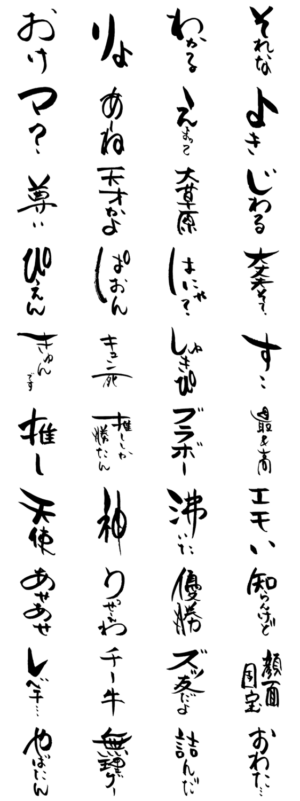 おけ
りょ
わかる
それな
マ？
あーね
えまって
よき
尊い
天才かよ
大草原
じわる
ぴえん
ぱおん
はにゃ？
大丈夫そ？
きゅんです
キュン死
しゅきぴ
すこ
推し
推ししか勝たん
ブラボー
最&高
天使
神
沸いた
エモい
あせあせ
優勝
知らんけど
レベチ…
チー牛
ズッ友だよ
顔面国宝
やばたん
無理ゲー
詰んだ
おわた…